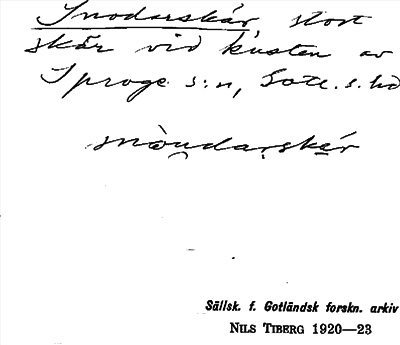 Snodarskär, stort
skär vid kusten av
Sproge s:n, Gotl. s. hd
Sällsk. f. Gotländsk forskn. arkiv
NILS TIBERG 1920—23